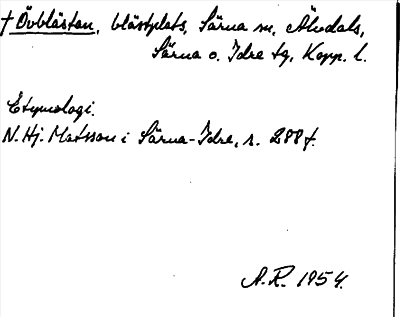 † Övblästan, blästplats, Särna sn, Älvdals,
Särna o. Idre tg, Kopp. l.
Etymologi.
N. Hj. Matsson i Särna-Idre, s. 288 f.
A.R. 1954.